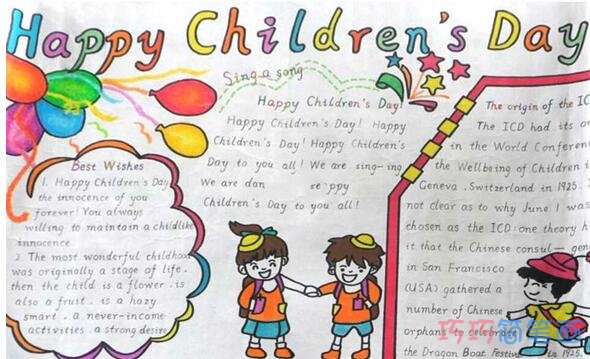 Happy Children's Day
Sing a song
Happy Children's Day!
Happy Children's Day! Happy
Children's Day! Happy Children's
Day to you all! We are sing-ing
We are dan se ppy
Children's Day to you all!
Best Wishes
1. Happy Children's Day
the innocence of you
forever! You always
willing to maintain a childlike
innocence
2. The most wonderful childhood
was originally a stage of life.
then the child is a flower. is
also a fruit. is a hazy
smart. a never-income
activities. a strong desire
The origin of the IC
The ICD had its or
in the World Conferen
the Wellbeing of Children i
Geneva. Switzerland in 1925. T
not clear as to why June 1 was
chosen as the ICD: one theory h
it that the Chinese consul— gene
in San Francisco
(USA) gathered a
number of Chinese
orphans to celebrate
the Dragon Boat Festival in 1925.
巧巧简笔画